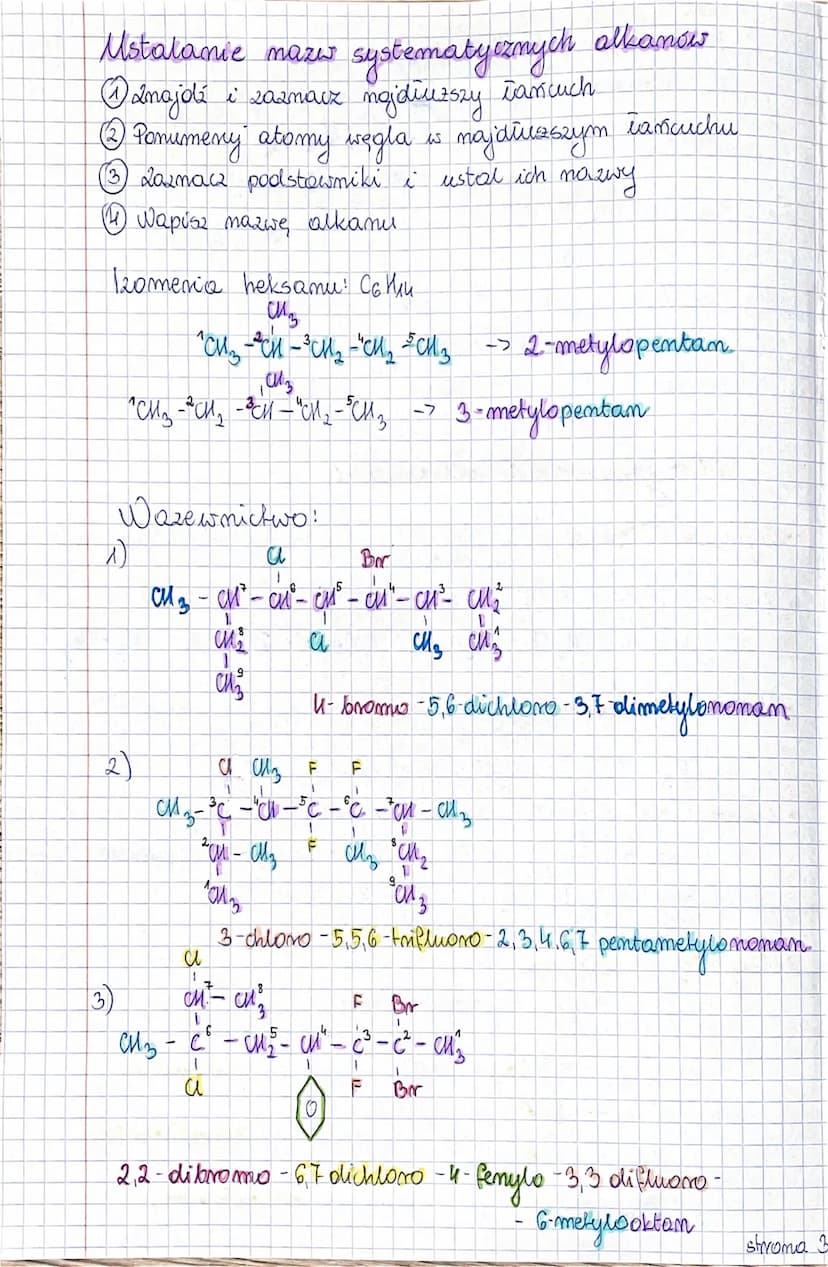 Ustalanie nazw systematycznych alkanów
① Znajdź i zaznacz najdłuższy łańcuch
② Ponumeruj atomy węgla w najdłuższym łańcuchu
③ Zaznacz podstawniki i ustal ich nazwy
④ Napisz nazwę alkanu
Izomeria heksanu: C6H14
CH3
¹CH3 -²CH -³CH2 -⁴CH2 -⁵CH3 -> 2-metylopentan
CH3
¹CH3 -²CH2 -³CH -⁴CH2 -⁵CH3 -> 3-metylopentan
Nazewnictwo:
1)
Cl Br
CH3 - CH⁷ - CH⁶ - CH⁵ - CH⁴ - CH³ - CH2²
CH2⁸ Cl CH3 CH3¹
CH3⁹
4-bromo-5,6-dichloro-3,7-dimetylononan
2)
Cl CH3 F F
CH3 -³C -⁴CH -⁵C -⁶C -⁷CH - CH3
²CH - CH3 F CH3 ⁸CH2
¹CH3 ⁹CH3
3-chloro-5,5,6-trifluoro-2,3,4,6,7 pentametylononan
Cl
3) CH⁷ - CH3⁸ F Br
CH3 - C⁶ - CH2⁵ - CH⁴ - C³ - C² - CH3¹
Cl F Br
2,2-dibromo-6,7 dichloro-4-fenylo-3,3 difluoro-
- 6-metylooktan
strona 3